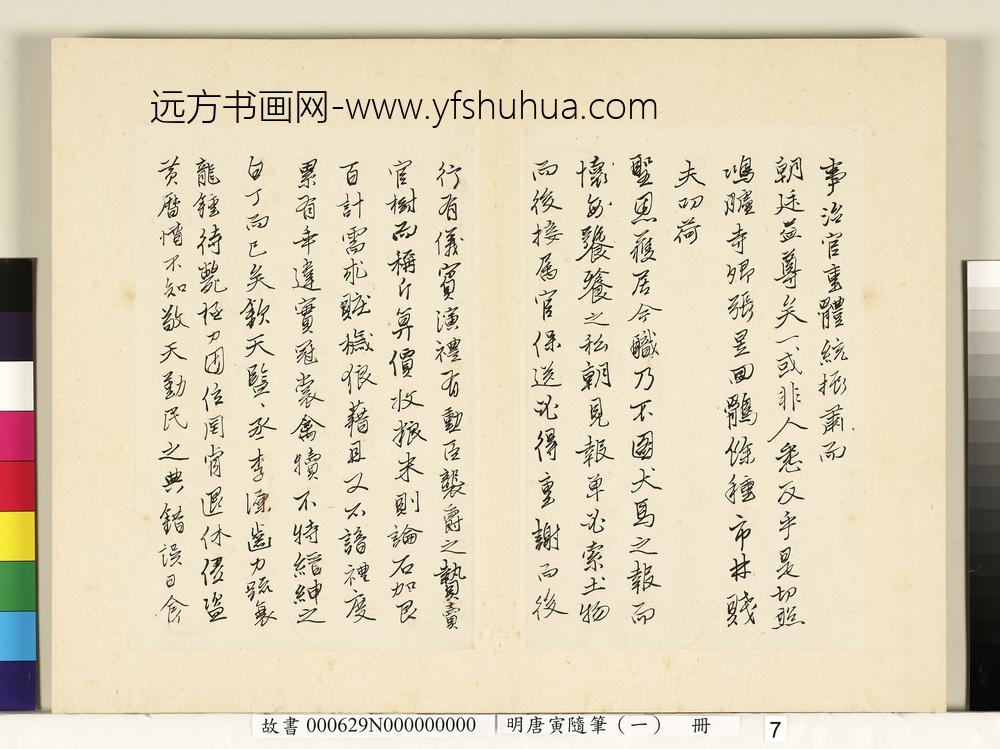 远方书画网-www.yfshuhua.com
事治官重體統振肅而
朝廷益尊矣一或非人悉反乎是切照
鴻臚寺卿張昱回鶻餘種市井賤
夫叨荷
聖恩獲居今職乃不圖犬馬之報而
懷饕餮之私朝見報单必索土物
而後接属官保送必得重謝而後
行有儀賓演禮有勳臣襲爵之贄賣
官樹而稱斤算價收粮米則論石加
百計需求賍穢狼藉且又不諳禮度
累有乖違實冠裳禽犢不特縉紳之
白丁而已矣欽天監丞李源齒力疏衰
龍鍾待斃極力固位罔肯退休僣盜
黃曆懵不知敬天勤民之典錯誤日食
故書 000629N000000000 明唐寅隨筆（一） 冊 7